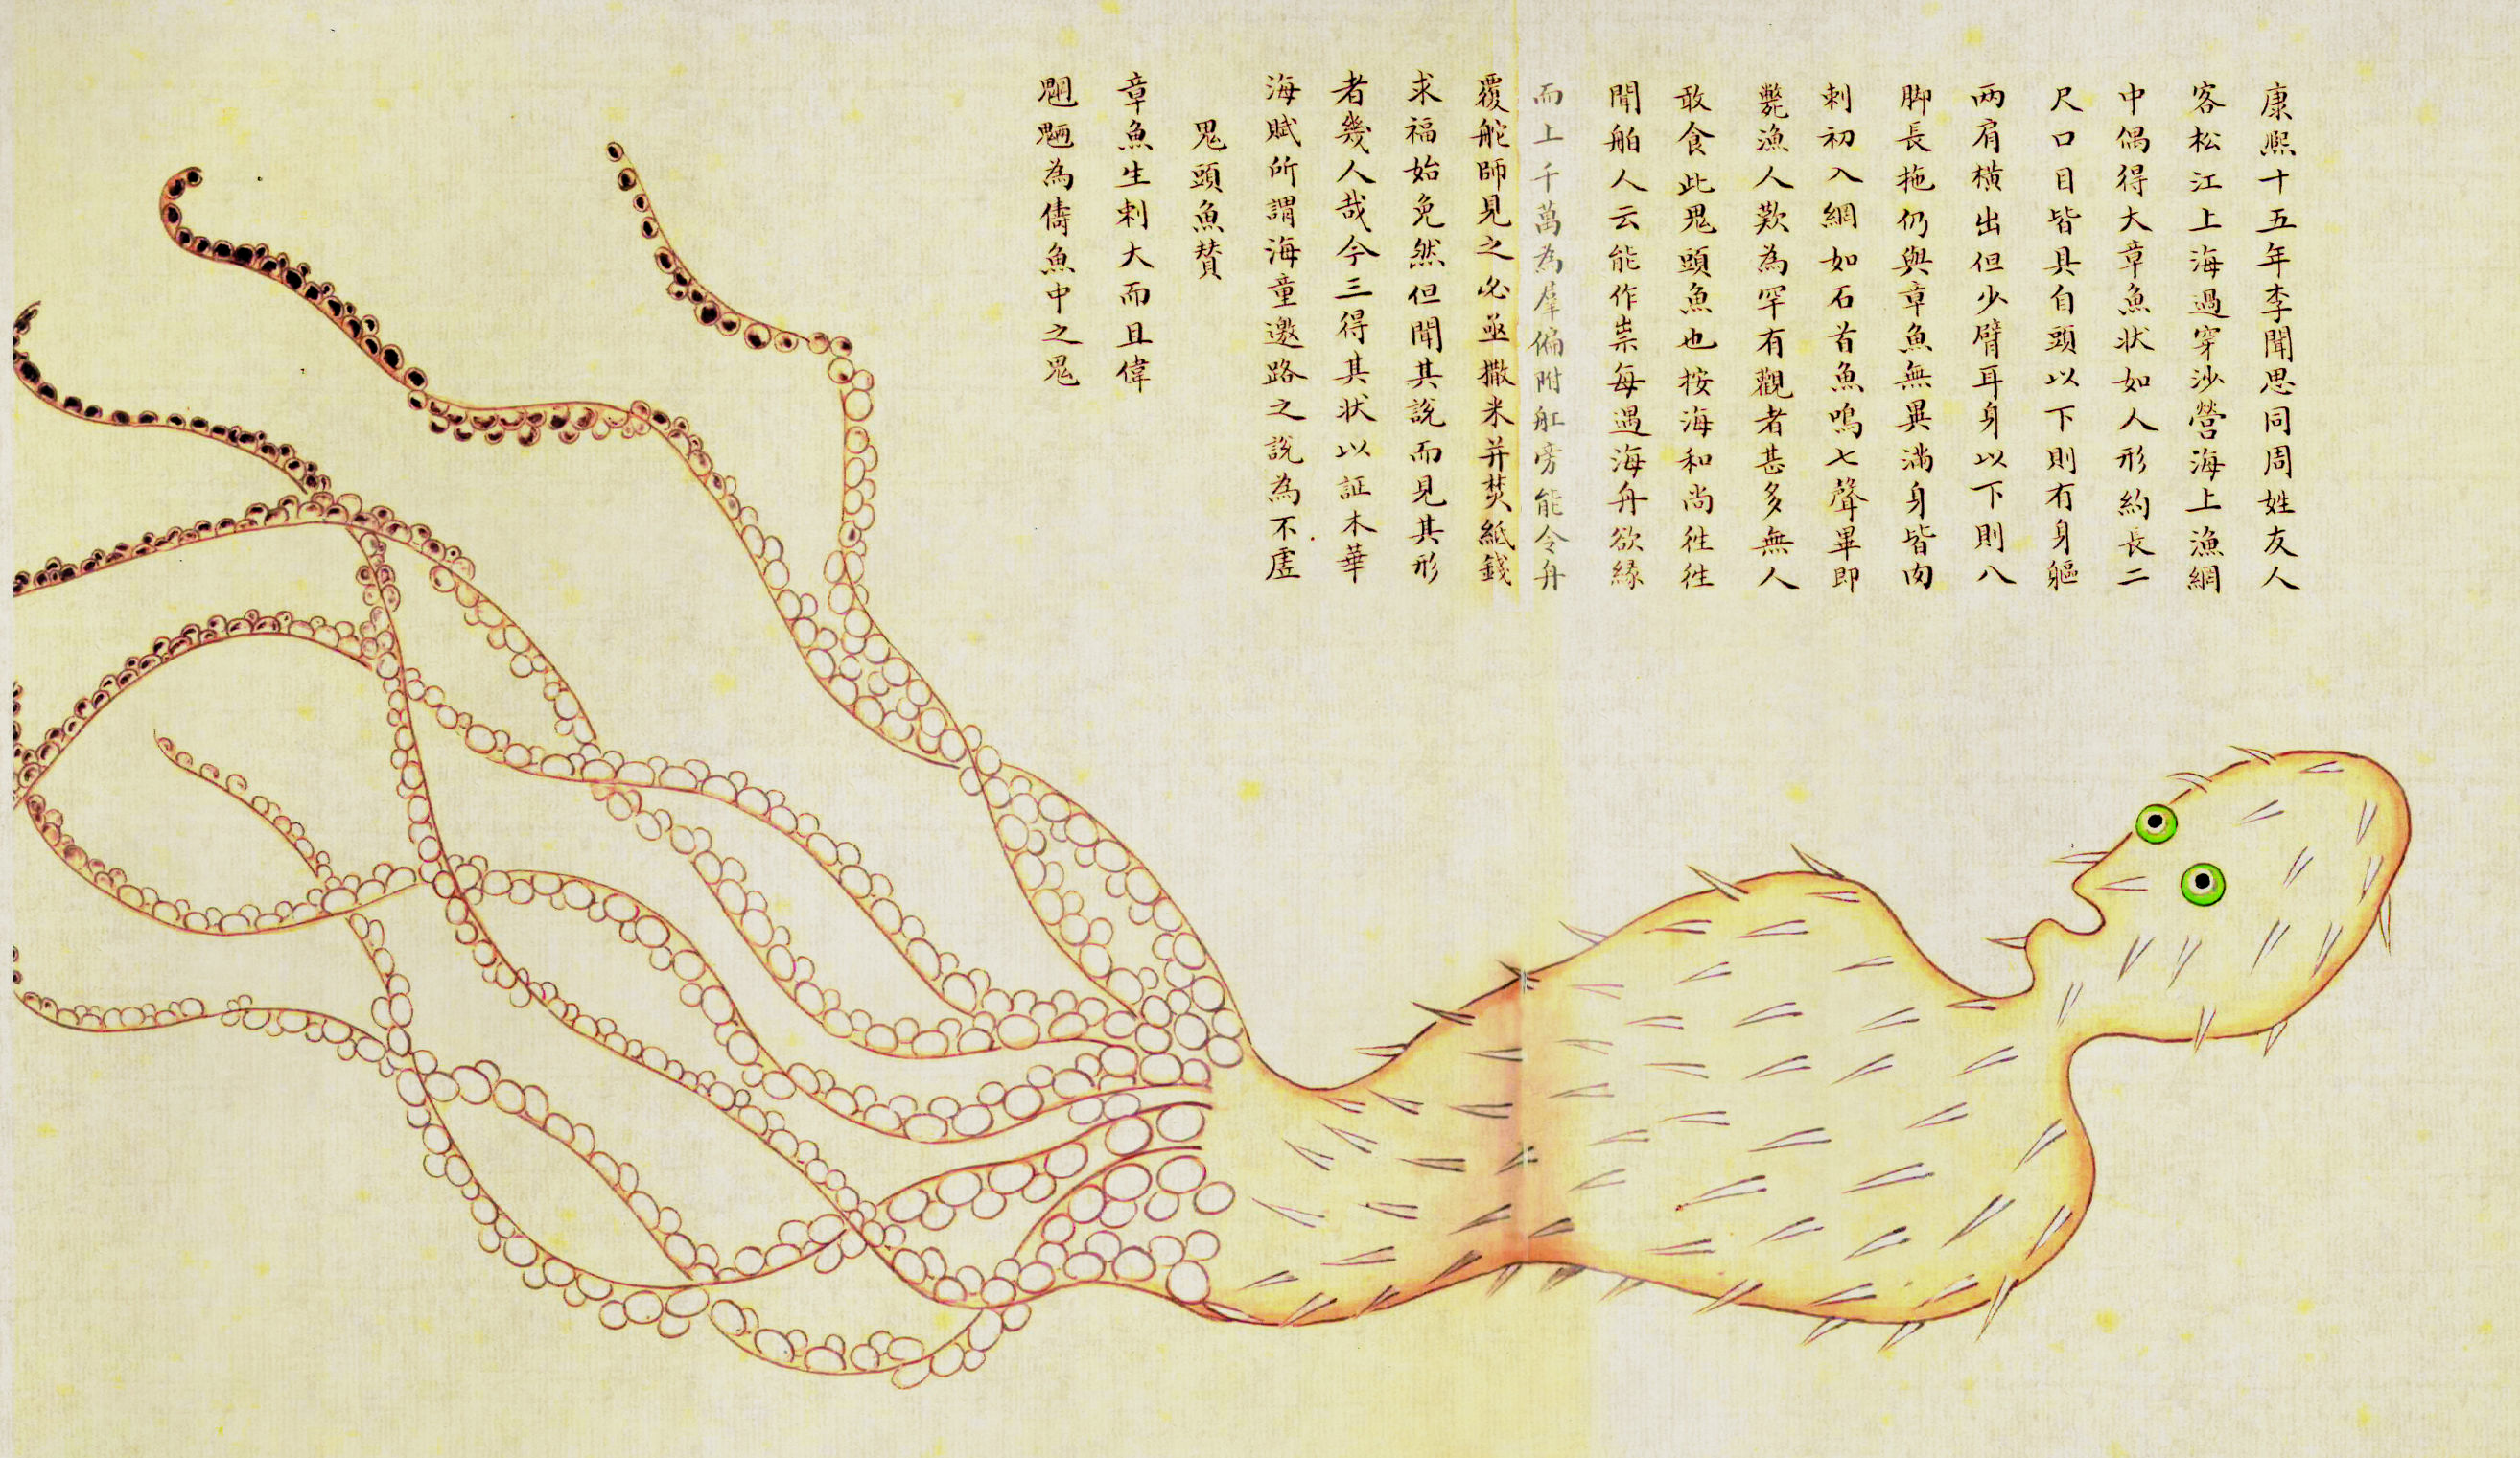 康熙十五年李聞思同周姓友人
客松江上海過穿沙營海上漁網
中偶得大章魚狀如人形約長二
尺口目皆具自頭以下則有身軀
两肩橫出但少臂耳身以下則八
脚長拖仍與章魚無異滿身皆肉
刺初入網如石首魚鳴七聲畢即
斃漁人歎為罕有觀者甚多無人
敢食此鬼頭魚也按海和尚徃徃
聞舶人云能作祟每遇海舟欲緣
而上千萬為羣偏附舡旁能令舟
覆舵師見之必亟撒米并焚紙錢
求福始免然但聞其說而見其形
者幾人哉今三得其狀以証木華
海賦所謂海童邀路之說為不虛
鬼頭魚賛
章魚生刺大而且偉
魍魎為儔魚中之鬼